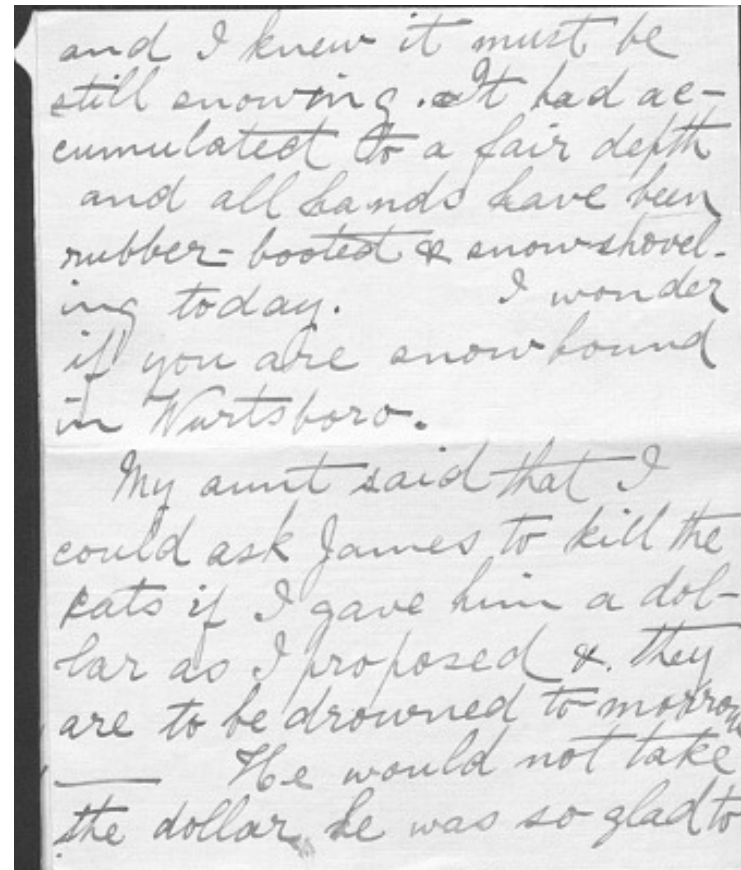 and I knew it must be
still snowing. It had ac-
cumulated to a fair depth
and all hands have been
rubber-booted & snow-shovel-
ing today. I wonder
if you are snowbound
in Wurtsboro.
My aunt said that I
could ask James to kill the
cats if I gave him a dol-
lar as I proposed &. they
are to be drowned to-morrow
—— He would not take
the dollar, he was so glad to